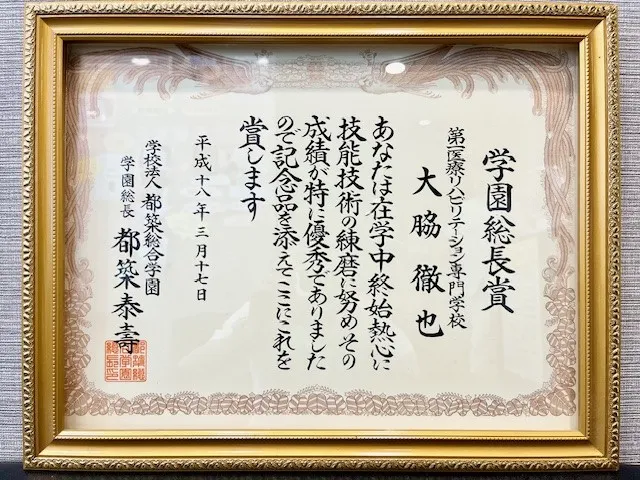 学園総長賞
第一医療リハビリテーション専門学校
大脇徹也
あなたは在学中終始熱心に
技能技術の練磨に努めその
成績が特に優秀でありました
ので記念品を添えてここにこれを
賞します
平成十八年三月十七日
学校法人 都築総合学園
学園総長 都築泰壽